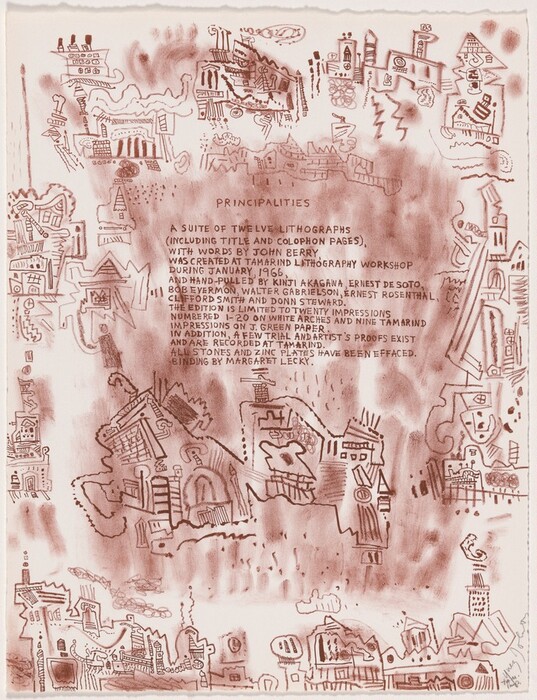 PRINCIPALITIES
A SUITE OF TWELVE LITHOGRAPHS
(INCLUDING TITLE AND COLOPHON PAGES),
WITH WORDS BY JOHN BERRY
WAS CREATED AT TAMARIND LITHOGRAPHY WORKSHOP
DURING JANUARY, 1966
AND HAND-PULLED BY KINJI AKAGAWA, ERNEST DE SOTO,
BOB EVERMON, WALTER GABRIELSON, ERNEST ROSENTHAL,
CLIFFORD SMITH AND DONN STEWARD.
THE EDITION IS LIMITED TO TWENTY IMPRESSIONS
NUMBERED 1-20 ON WHITE ARCHES AND NINE TAMARIND
IMPRESSIONS ON J. GREEN PAPER.
IN ADDITION, A FEW TRIAL AND ARTIST'S PROOFS EXIST
AND ARE RECORDED AT TAMARIND.
ALL STONES AND ZINC PLATES HAVE BEEN EFFACED.
BINDING BY MARGARET LECKY.